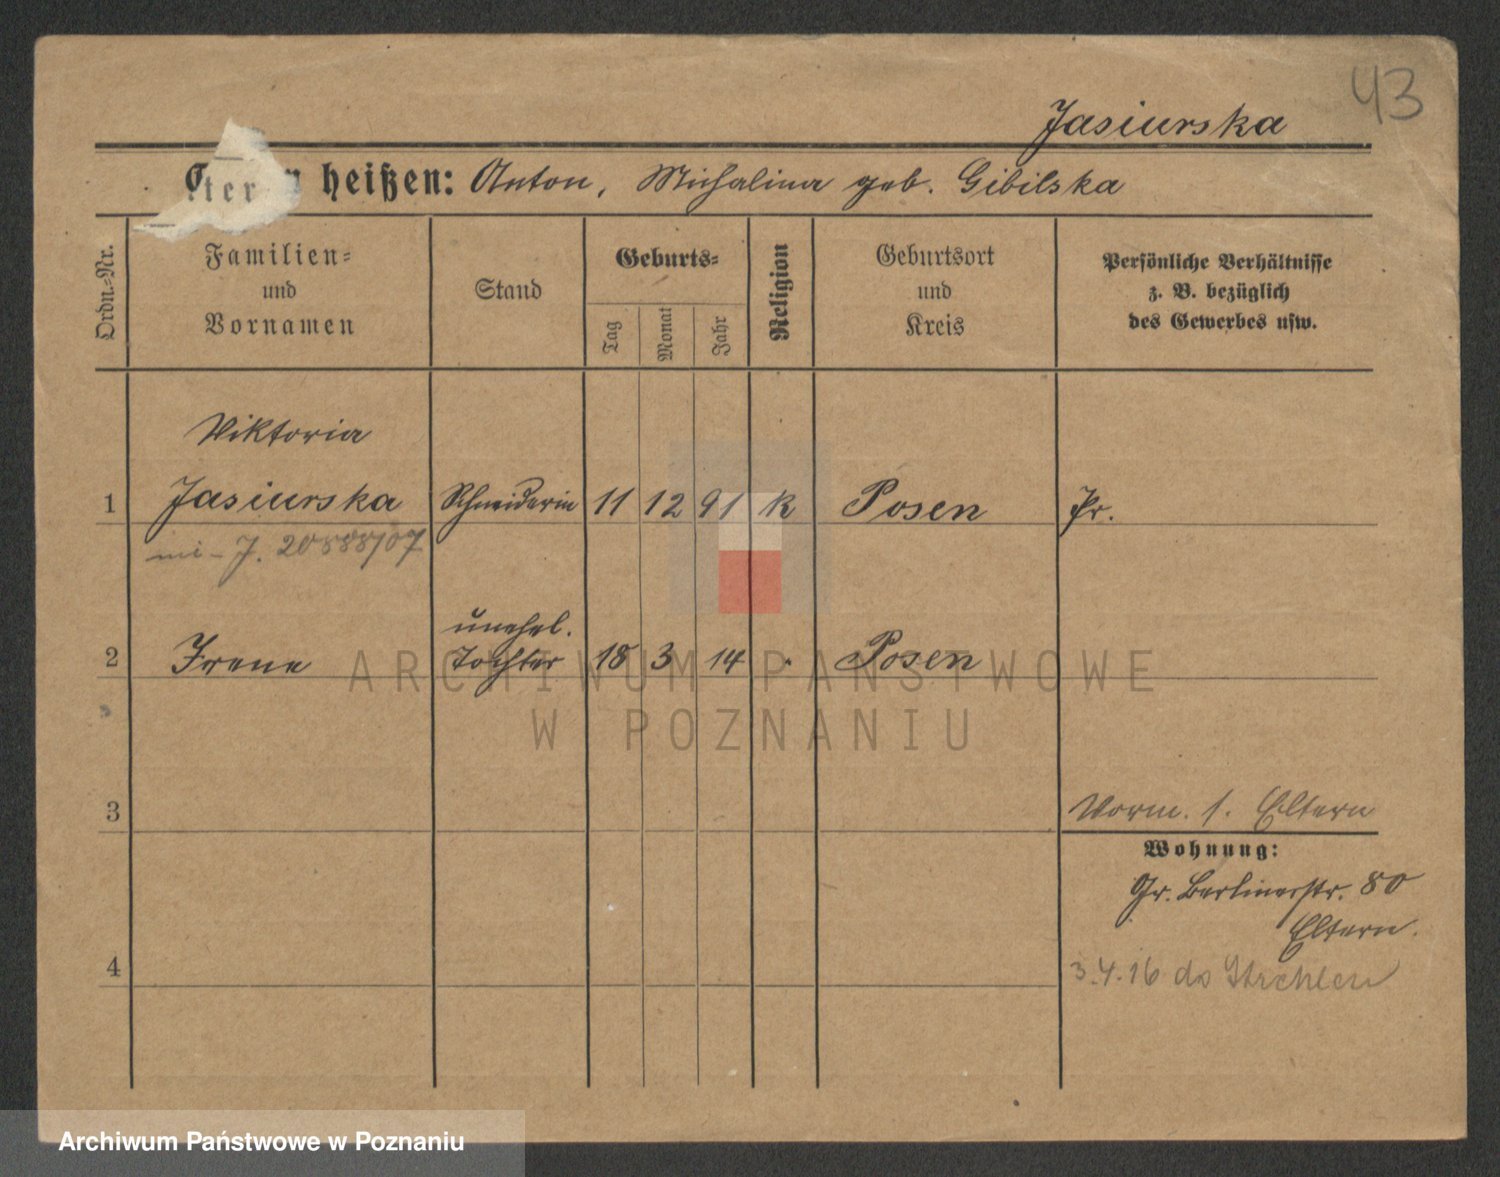 43
Jasiurska
Eltern heißen: Anton, Michalina geb. Gibilska
Ordn.-Nr.
Familien-
und
Vornamen
Stand
Geburts-
Tag
Monat
Jahr
Religion
Geburtsort
und
Kreis
Persönliche Verhältnisse
z. B. bezüglich
des Gewerbes usw.
Viktoria
1 Jasiurska Schneiderin 11 12 91 k Posen Pr.
J. 20888/07
unehel.
2 Irene Tochter 18 3 14 . Posen
ARCHIWUM PAŃSTWOWE
W POZNANIU
3
Vorm. s. Eltern
Wohnung:
Gr. Berlinerstr. 80
Eltern.
4
3.4.16 do Strehlen
Archiwum Państwowe w Poznaniu